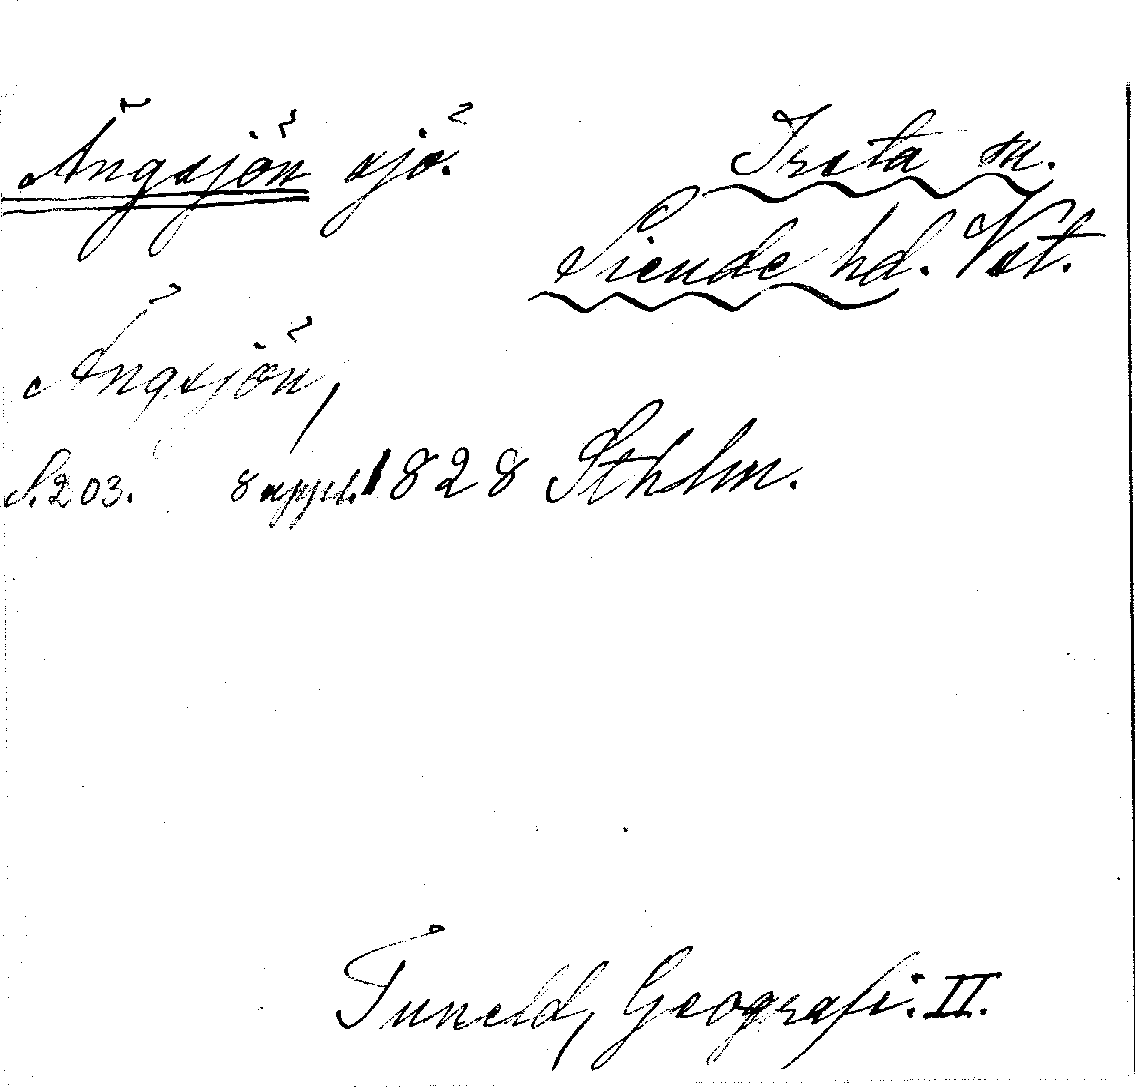 Ängsjön sjö. Irsta sn.
Siende hd. Vst.
Ängsjön,
S. 203. 8 uppl. 1828 Sthlm.
Tuneld, Geografi. II.